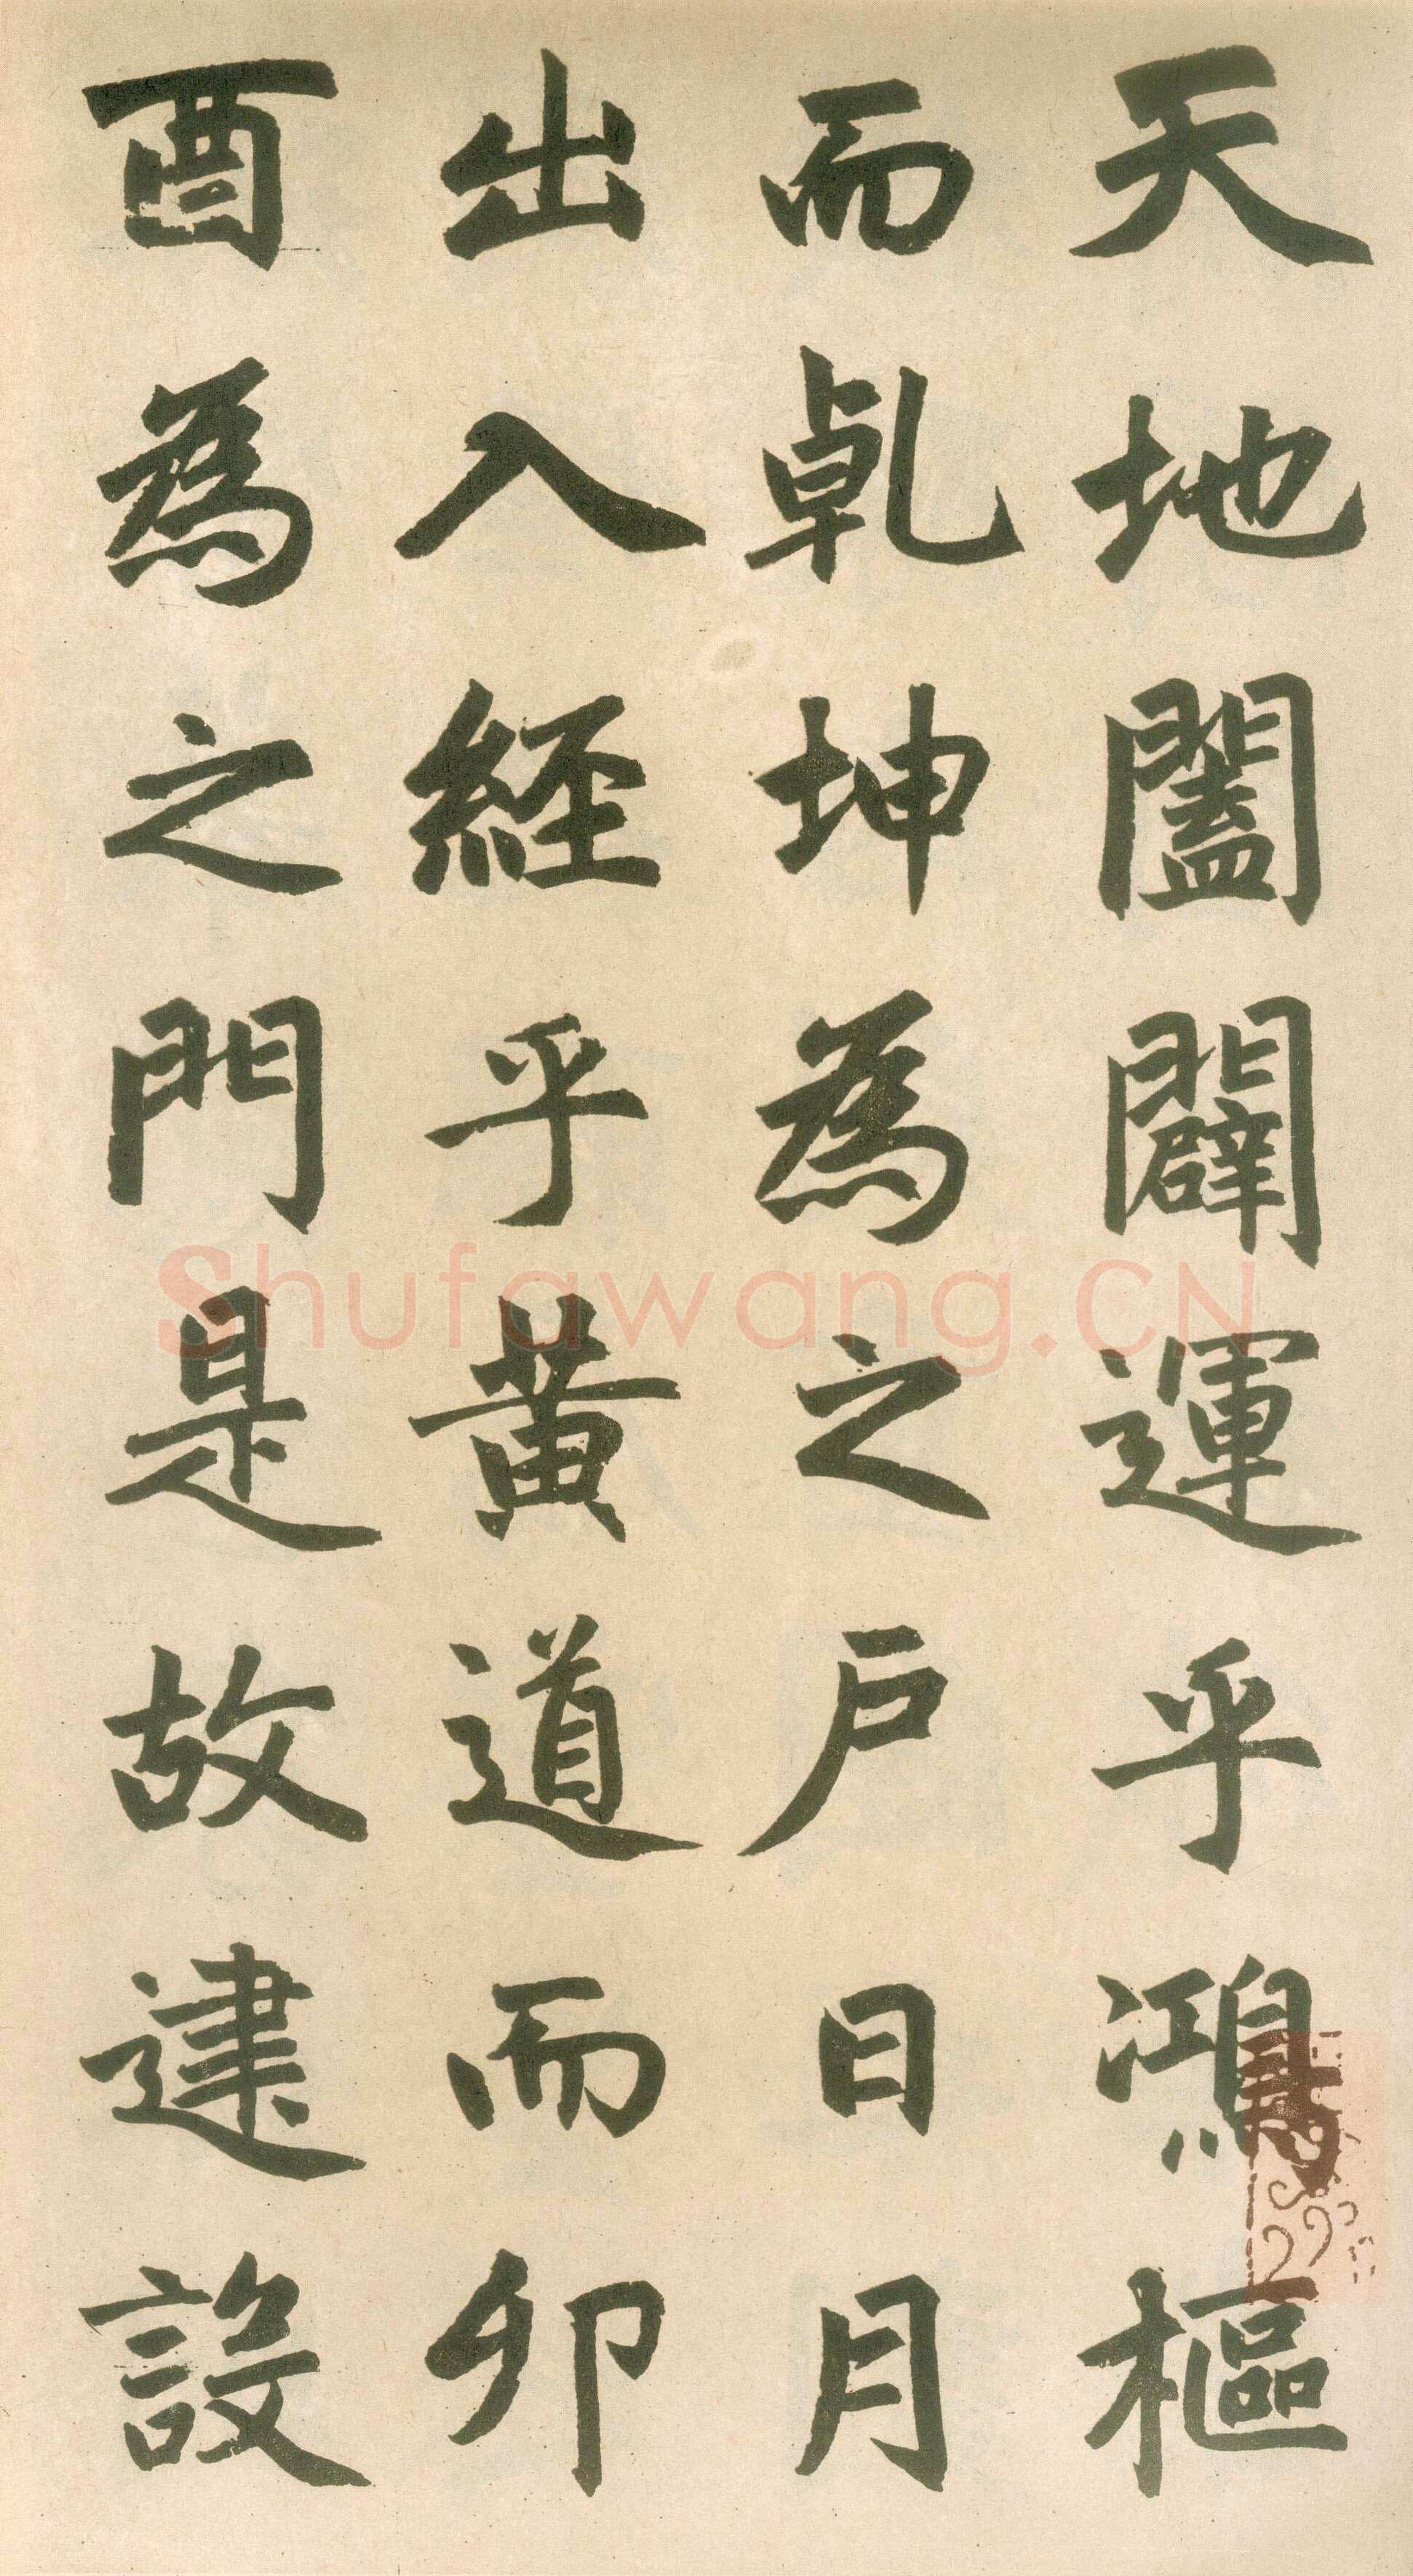 天地闔闢運乎鴻樞
而乹坤為之户日月
出入經乎黄道而卯
酉為之門是故建設
Shufawang.CN